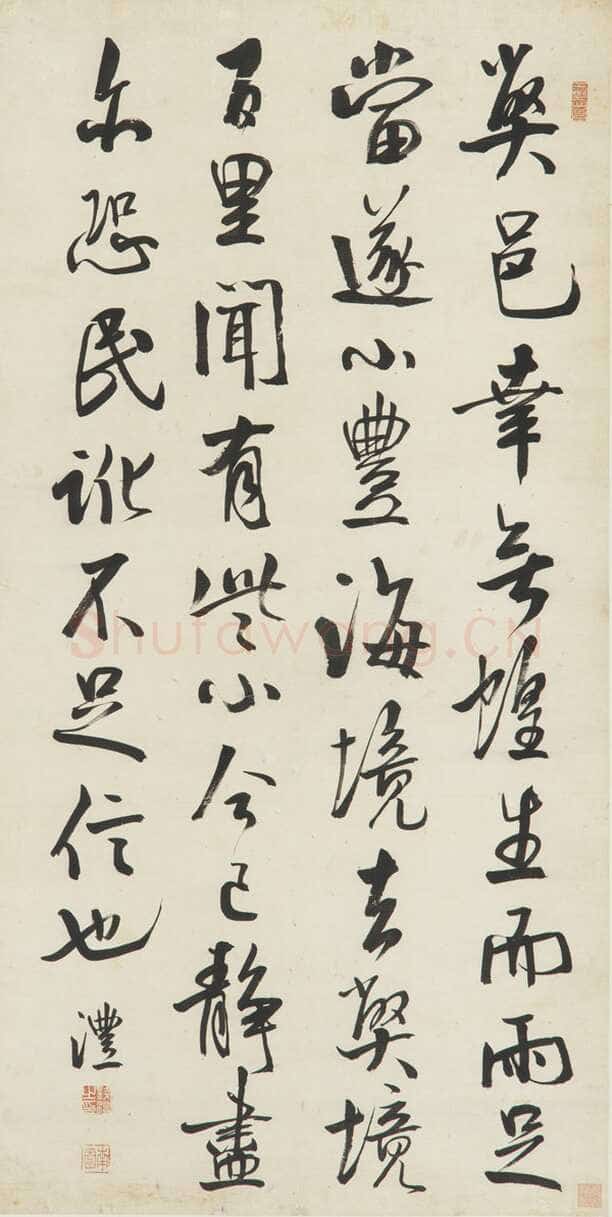 獘邑幸無蝗生而雨足
當遂小豐海境去獘境
百里聞有些小今已靜盡
尔恐民訛不足信也 灃
Shufawang.CN